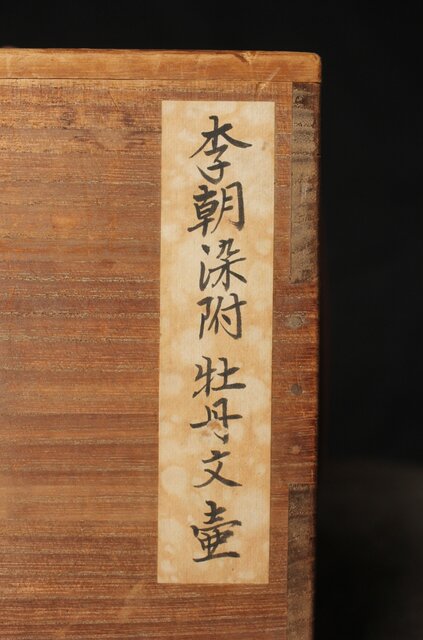 李朝染附牡丹文壷